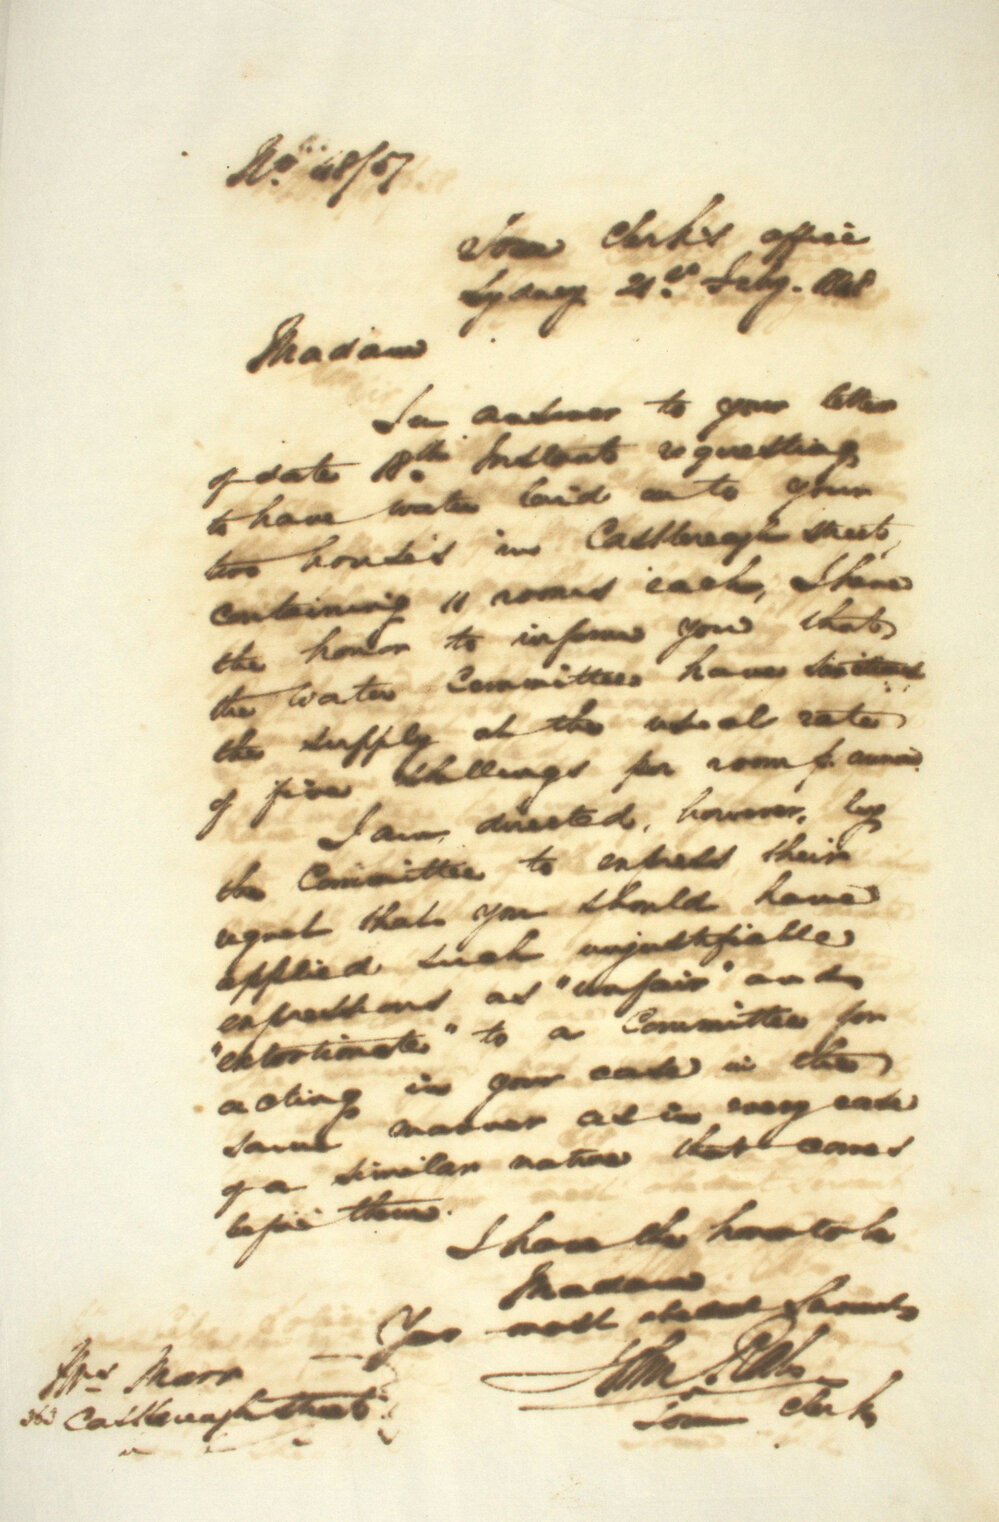 No. 48/57
Town Clerk's office
Sydney 21st July. 1848
Madam
In answer to your letter
of date 18th Instant requesting
to have water laid on to your
two houses in Castlereagh Street,
containing 11 rooms each, I have
the honor to inform you that
the Water Committee have
the supply at the usual rate
of five shillings per room p. annum.
I am directed, however, by
the Committee to express their
regret that you should have
applied such unjustifiable
expressions as "unfair" and
"extortionate" to a Committee for
acting in your case in the
same manner as in every case
of a similar nature that comes
before them.
I have the honor to be
Madam
Your most obedient Servant
John
Town Clerk
Mrs Marr
Castlereagh Street